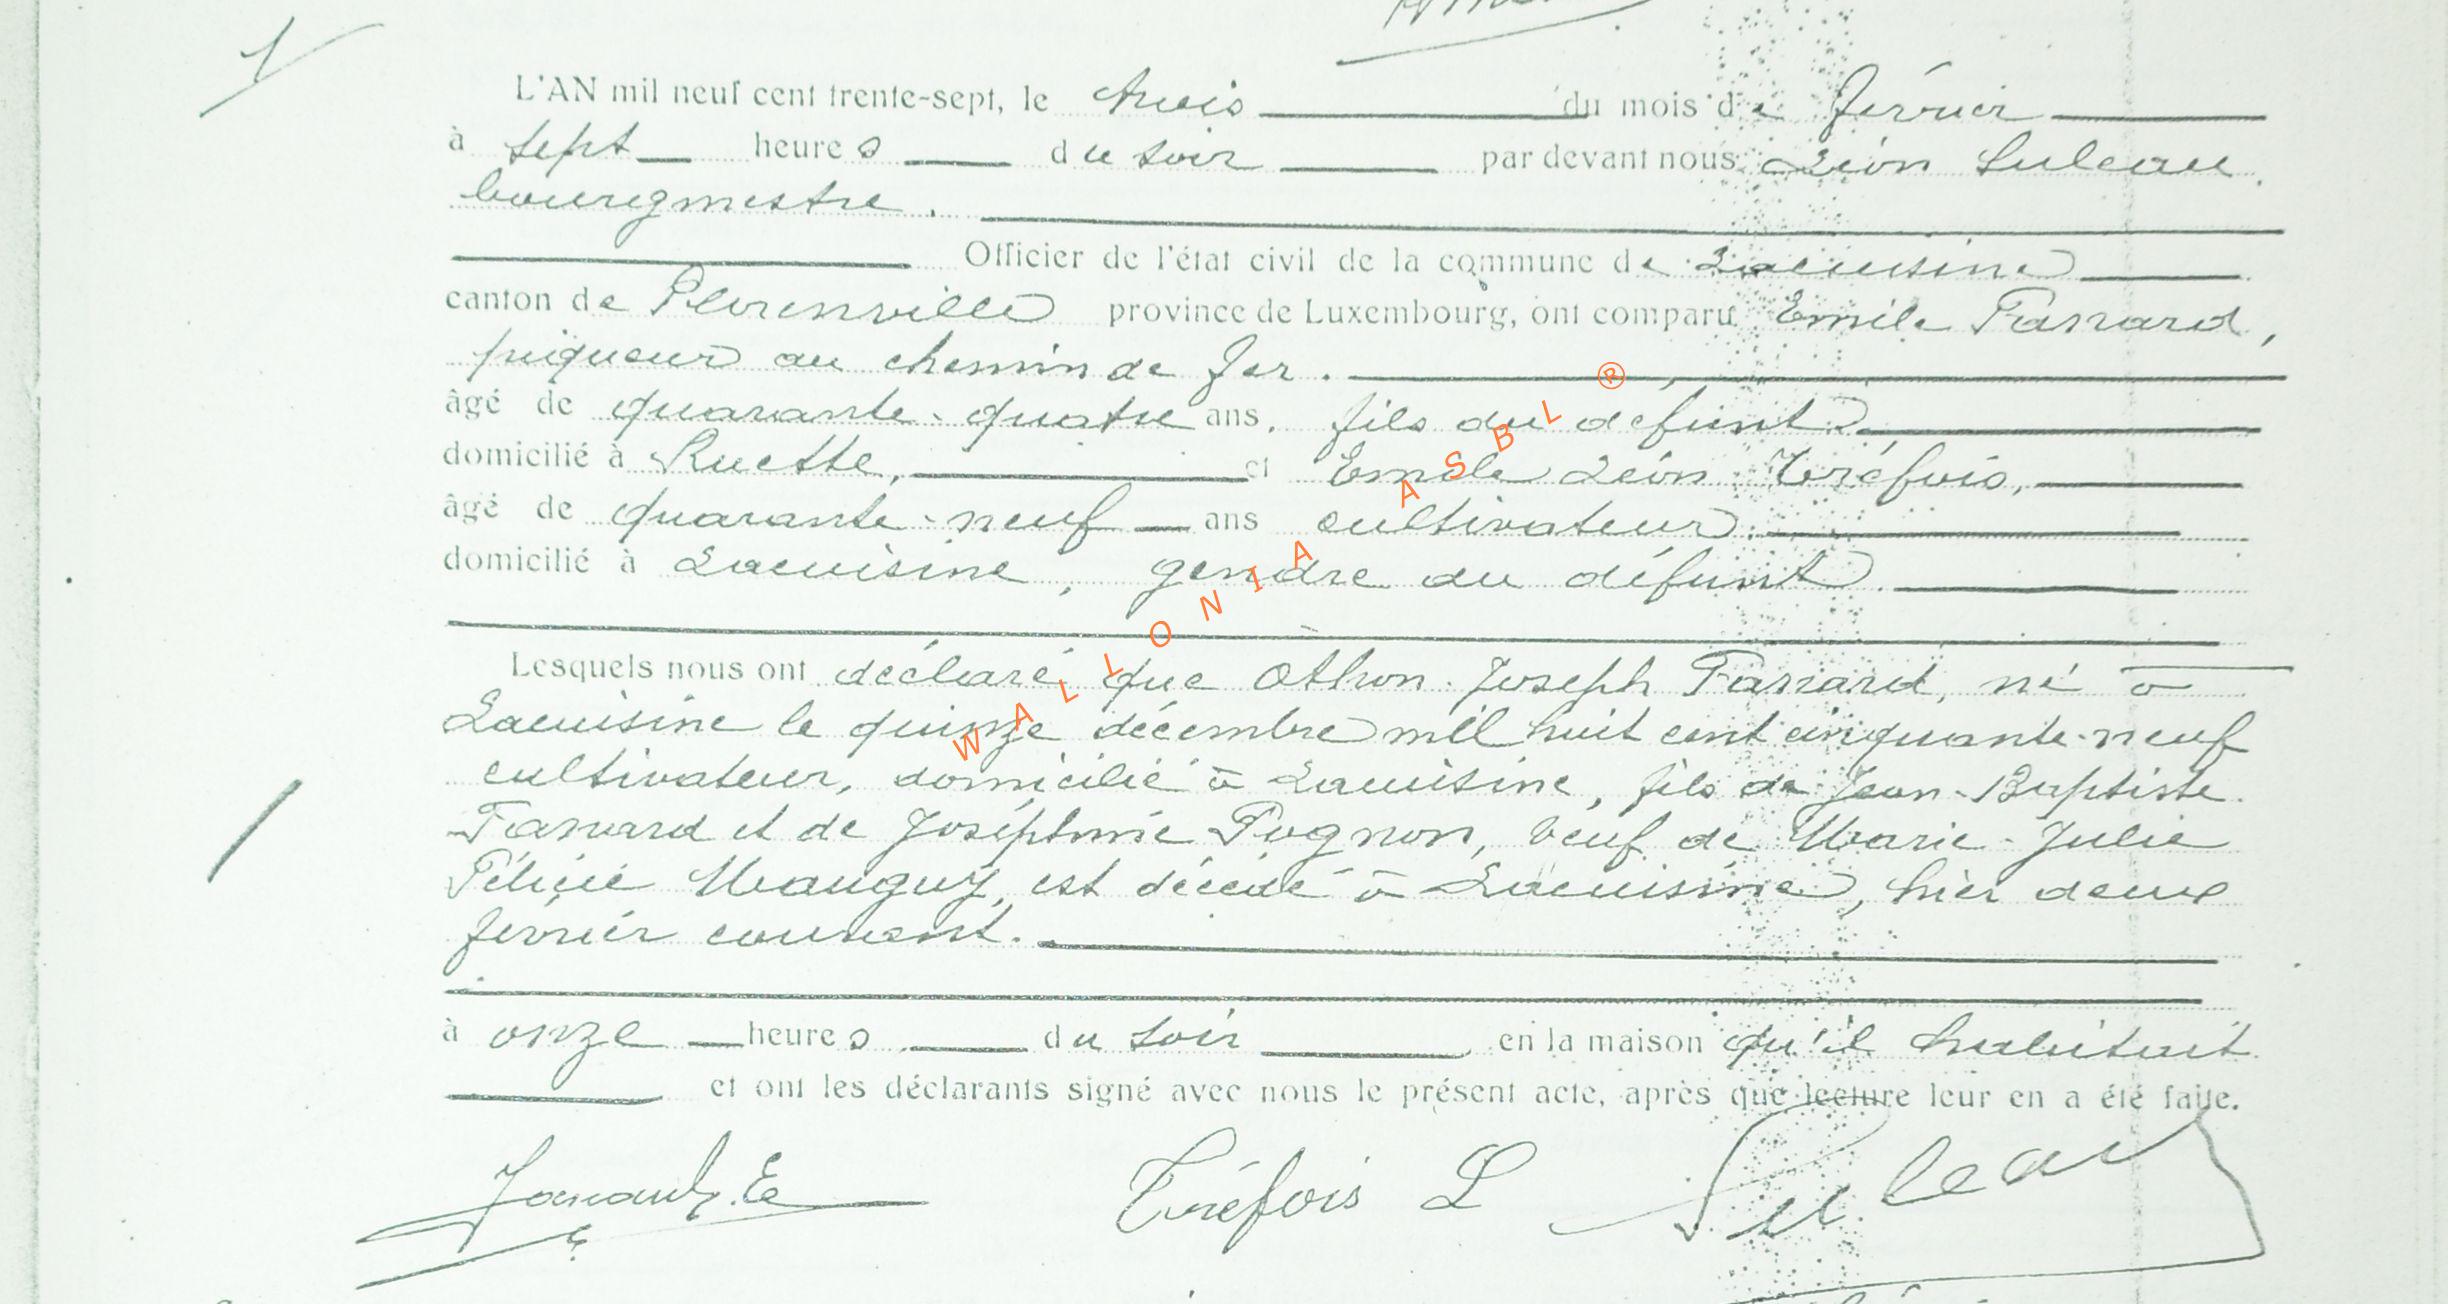 L'AN mil neuf cent trente-sept, le trois du mois de février
à sept heures du soir par devant nous Léon Suleau.
bourgmestre.
Officier de l'état civil de la commune de Lacuisine
canton de Florenville province de Luxembourg, ont comparu Emile Fanard,
piqueur au chemin de fer.
âgé de quarante-quatre ans, fils du défunt
domicilié à Ruette, et Emile Léon Tréfois,
âgé de quarante-neuf ans cultivateur.
domicilié à Lacuisine, gendre du défunt
Lesquels nous ont déclaré que Othon Joseph Fanard, né à
Lacuisine le quinze décembre mil huit cent cinquante-neuf
cultivateur, domicilié à Lacuisine, fils de Jean-Baptiste
Fanard et de Joséphine Pognon, veuf de Marie-Julie
Félicie Mauguy, est décédé à Lacuisine, hier deux
février courant.
à onze heures du soir en la maison qu'il habitait
et ont les déclarants signé avec nous le présent acte, après que lecture leur en a été faite.
Tréfois L Suleau
WALLONIA ASBL ®